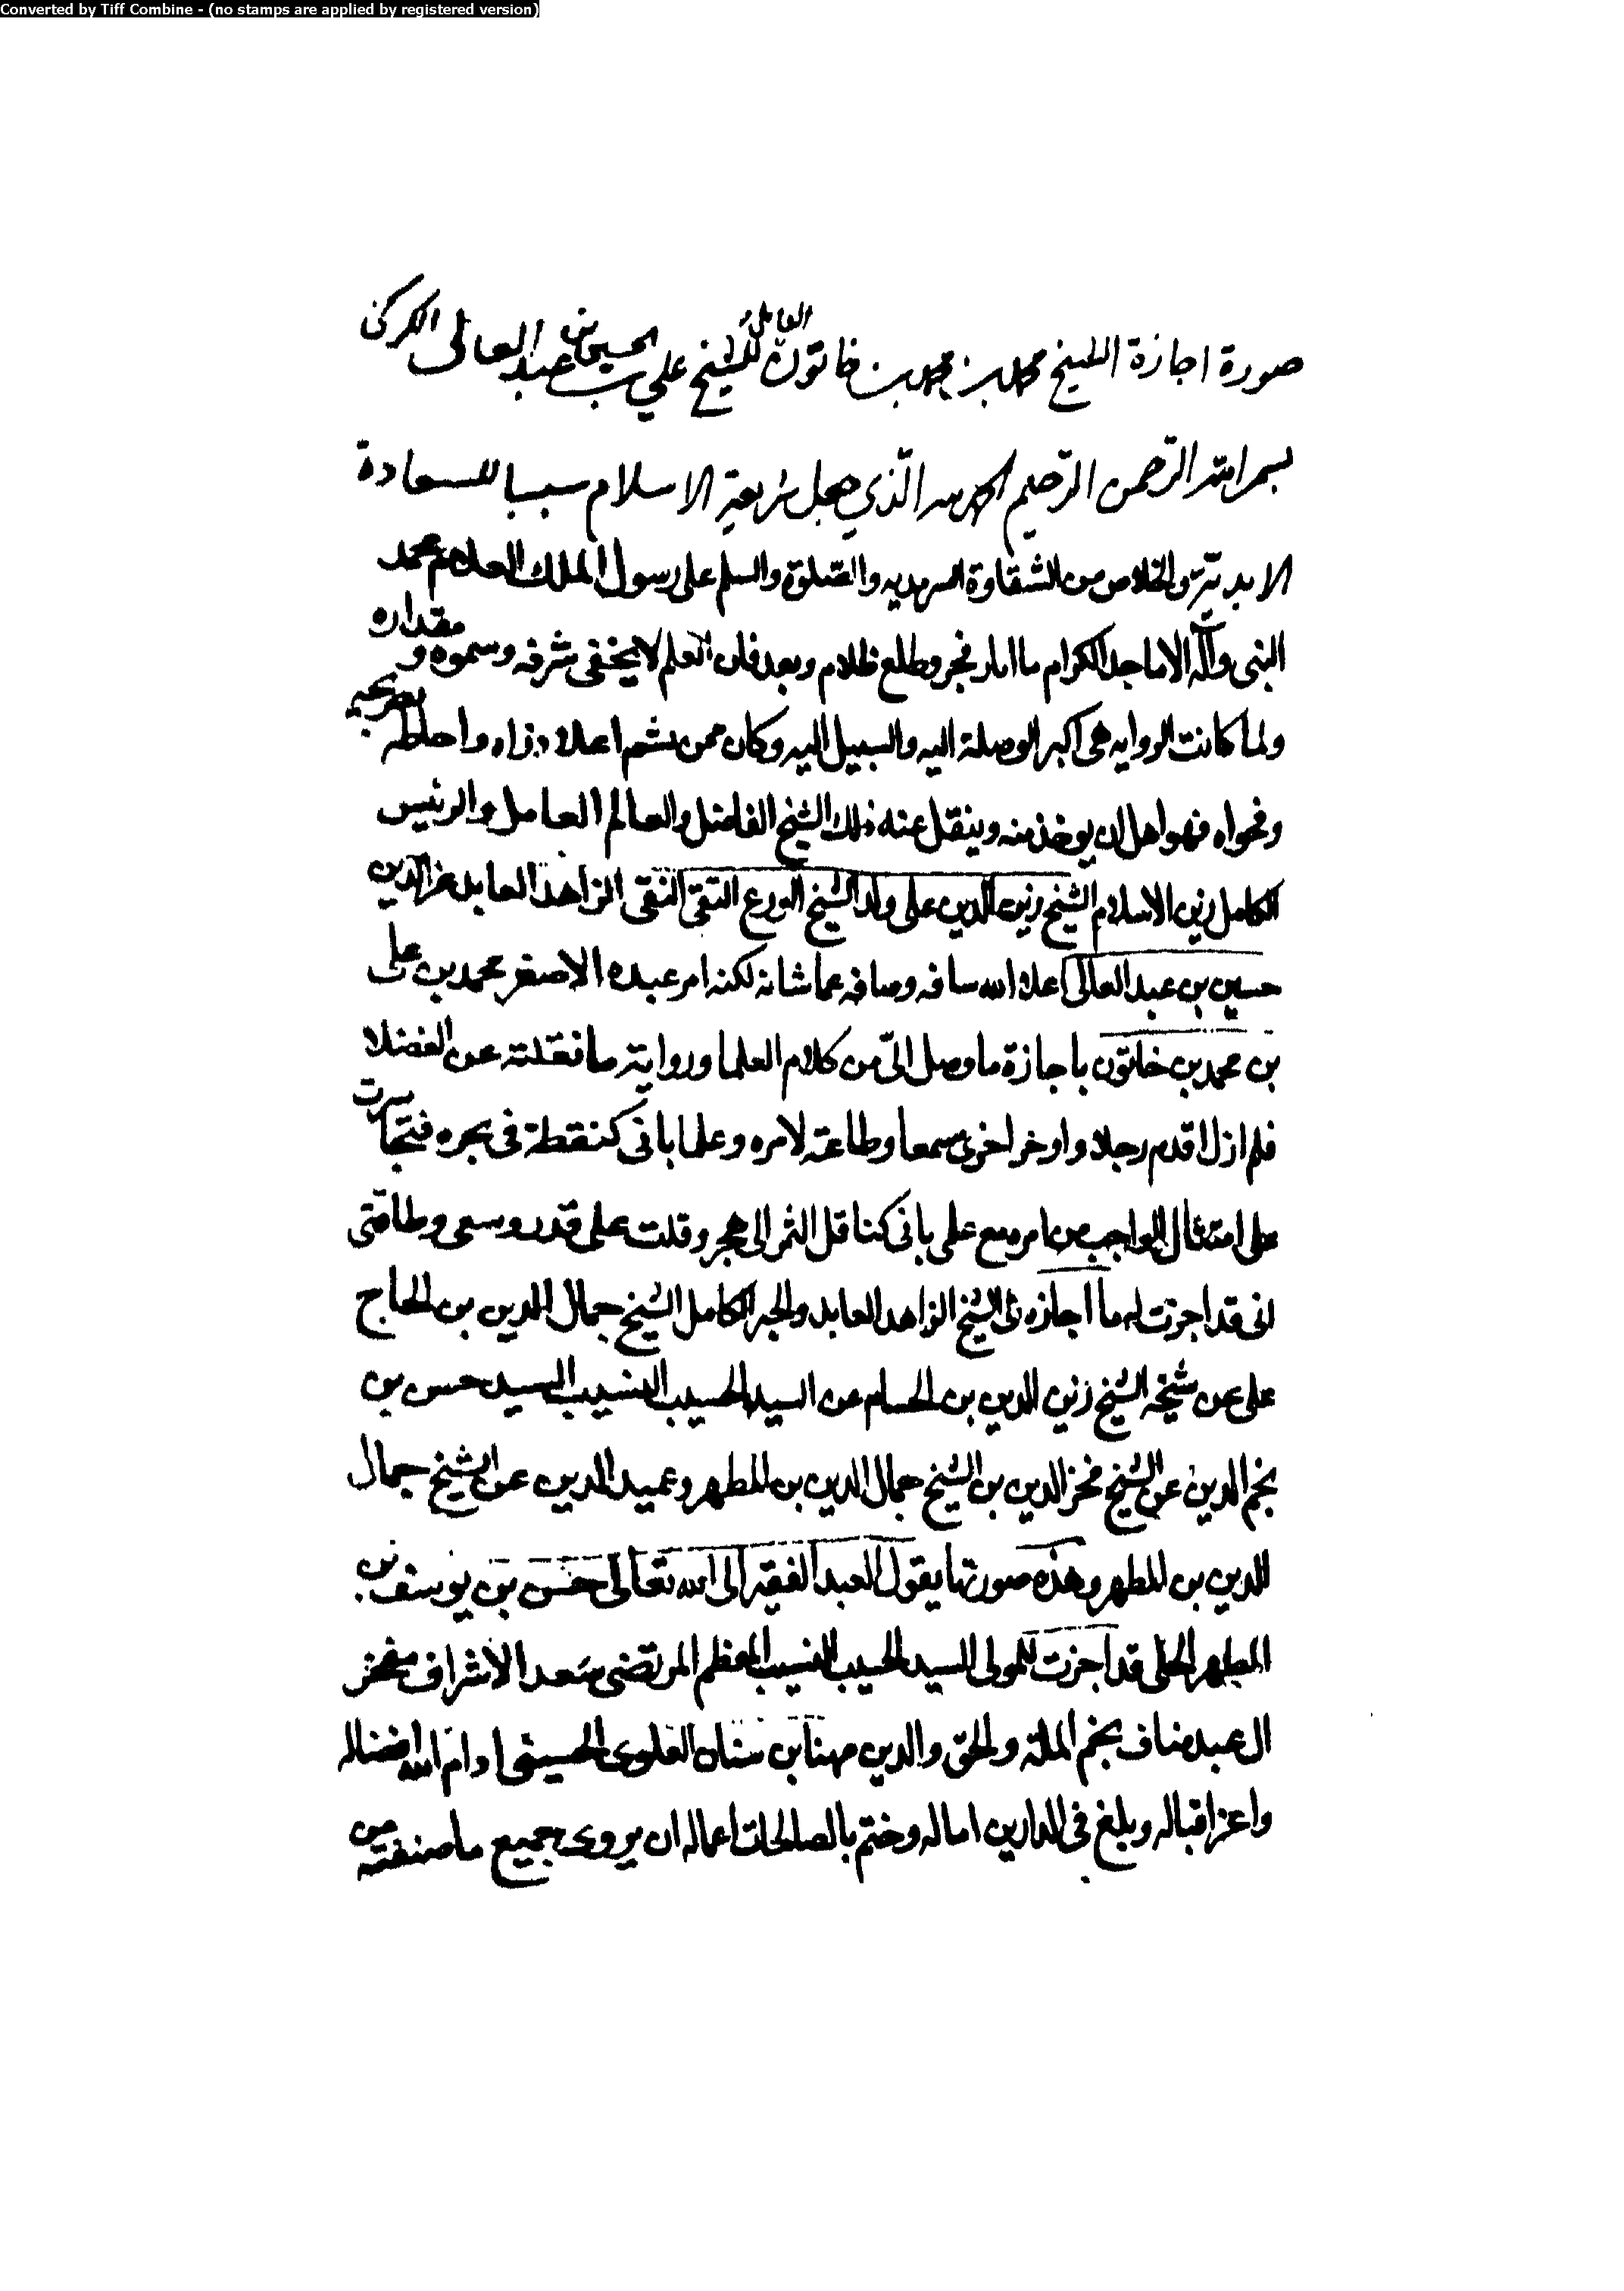 Converted by Tiff Combine - (no stamps are applied by registered version)
صورة اجازة الشيخ محمد بن محمد بن خاتون العاملي للشيخ علي بن الحسين بن عبد العالى الكركى
بسم الله الرحمن الرحيم الحمد لله الذي جعل شريعة الاسلام سببا للسعادة
الابدية والخلاص من الشقاوة السرمديه والصلوة والسلم على رسول الملك العلام محمد
النبى وآله الاماجد الكرام ما انار فجر وطلع ظلام وبعد فان العلم لا يخفى شرفه وسموه و مقداره
ولما كانت الروايه هى اكبر الوصلة اليه والسبيل اليه وكان ممن اعلا واحاطه
وفحواه فهو اهل ان يوخذ منه وينقل عنه ذلك الشيخ الفاضل والعالم العامل والرئيس
الكامل زين الاسلام الشيخ زين الدين على ولد الشيخ الورع التقى النقى الزاهد العابد عز الدين
حسين بن عبد العالى اعلا الله سافه وصافه عما شانه لكنه امر عبده الاصغر محمد بن على
بن محمد بن خاتون باجازة ما وصل الىّ من كلام العلما ورواية ما نقلته عن الفضلا
فلم ازل اقدم رجلا واوخر اخرى سمعا وطاعة لامره وعلما بانى كنقطة فى بحره فتجاسرت
على امتثال الواجب من امر مع علمى بانى كناقل التمر الى هجر وقلت على قدر وسعى وطاقتى
انى قد اجزت له ما اجازه لى الشيخ الزاهد العابد والحبر الكامل الشيخ جمال الدين بن الحاج
على عن شيخه الشيخ زين الدين بن الحسام عن السيد الحسيب النسيب السيد حسن بن
نجم الدين عن الشيخ فخر الدين بن الشيخ جمال الدين بن المطهر وعميد الدين عن الشيخ جمال
الدين بن المطهر وهذه صورتها يقول العبد الفقير الى الله تعالى حسن بن يوسف بن
المطهر الحلى قد اجزت للمولى السيد الحسيب النسيب المعظم المرتضى سعد الاشراف مفخر
ال عبد مناف نجم الملة والحق والدين مهنا بن سنان العلوى الحسينى ادام الله افضاله
واعز اقباله وبلغ فى الدارين اماله وختم بالصالحات اعماله ان يروى جميع ما صنفته من